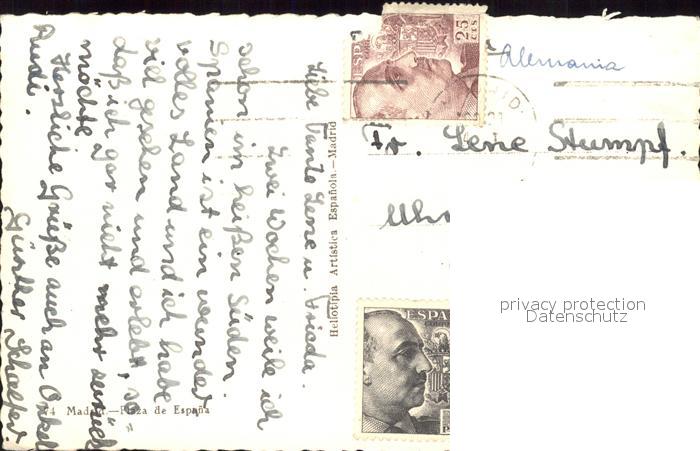 Liebe Tante Lene u. Frieda.
Zwei Wochen weile ich
schon im heißen Süden.
Spanien ist ein wunder
volles Land und ich habe
viel gesehen und erlebt, so=
daß ich gar nicht mehr zurück
möchte.
Herzliche Grüße auch an Onkel
Rudi.
Günther
74 Madrid.—Plaza de España
Heliotipia Artística Española.—Madrid
ESPAÑA
25
CTS
Alemania
Fr. Lene Stumpf.
ESPA
privacy protection
Datenschutz